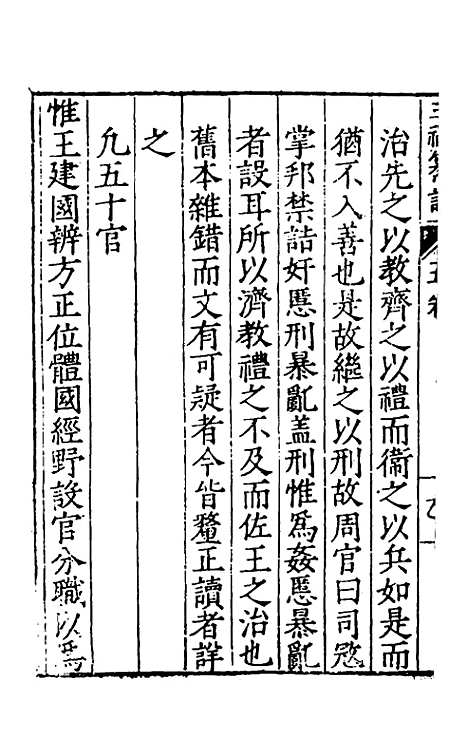 三禮纂註 五卷
治先之以教齊之以禮而衞之以兵如是而
猶不入善也是故繼之以刑故周官曰司𡨥
掌邦禁詰奸慝刑暴亂盖刑惟爲姦慝暴亂
者設耳所以濟教禮之不及而佐王之治也
舊本雜錯而文有可疑者今皆釐正讀者詳
之
凢五十官
惟王建國辨方正位體國經野設官分職以爲